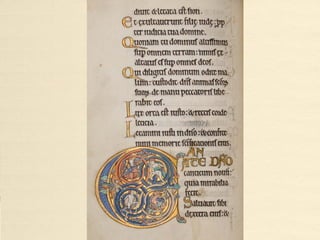 diuit & letata est sion.
Et exultauerunt filię iudę: p̄p
ter iudicia tua domine.
Quoniam tu dominus altissimus
sup omnem terram: nimis ex
altatus es sup omnes deos.
Qui diligitis dominum odite ma
lum: custodit dn̄s animas scōꝝ
suoꝝ de manu peccatoris libe
rabit eos.
Lux orta est iusto: & rectis corde
leticia.
Letamini iusti in dn̄o: & confite
mini memorie sc̄ificationis eius.
CAN
TATE DN̄O
canticum nouū:
quia mirabilia
fecit.
Saluauit sibi
dextera eius: &